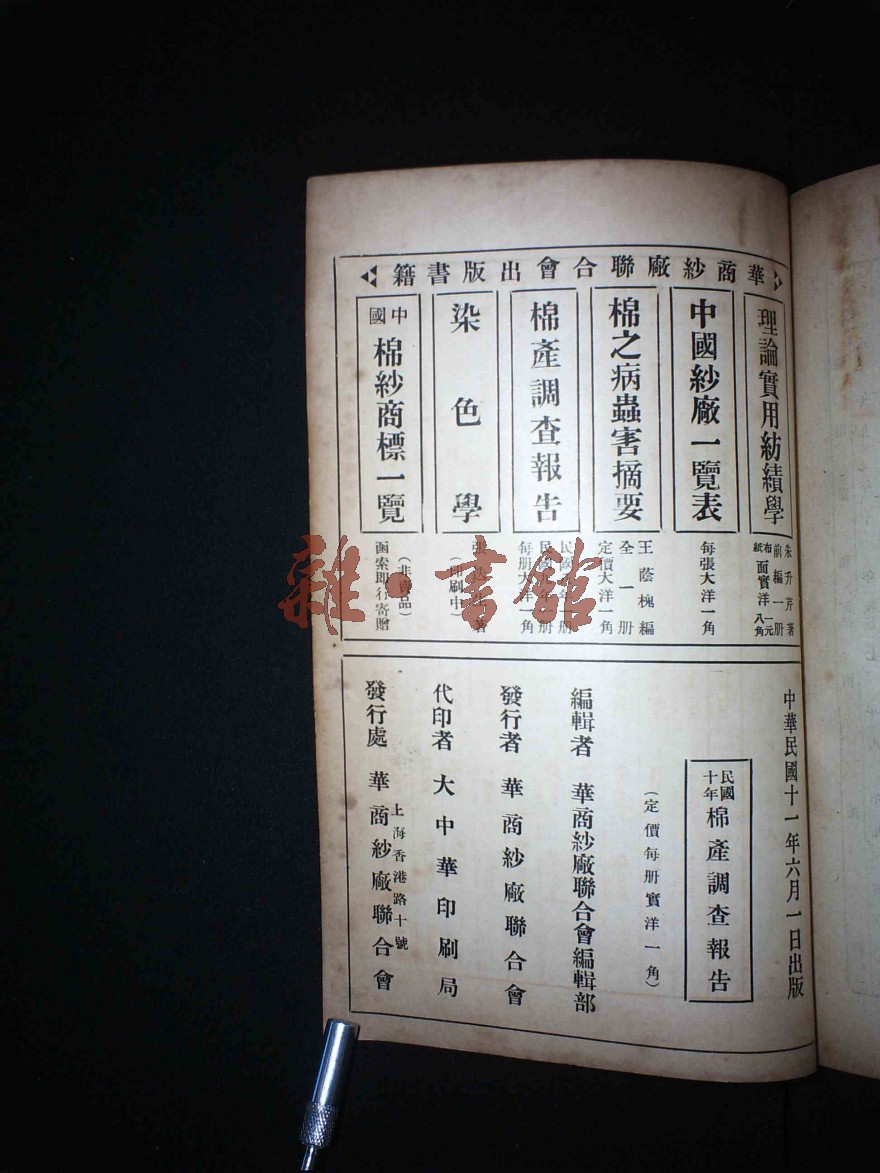 華商紗廠聯合會出版書籍
理論實用紡績學
朱升芹著
前編一册
布面實洋一元
紙面實洋八角
中國紗廠一覽表
每張大洋一角
棉之病蟲害摘要
王蔭槐編
全一册
定價大洋一角
棉產調查報告
民國年册
民國年册
每册大洋一角
染色學
張著
(印刷中)
中國棉紗商標一覽
(非賣品)
函索即行寄贈
中華民國十一年六月一日出版
民國十年棉產調查報告
(定價每册實洋一角)
編輯者 華商紗廠聯合會編輯部
發行者 華商紗廠聯合會
代印者 大中華印刷局
發行處 上海香港路十號 華商紗廠聯合會
雜·書館